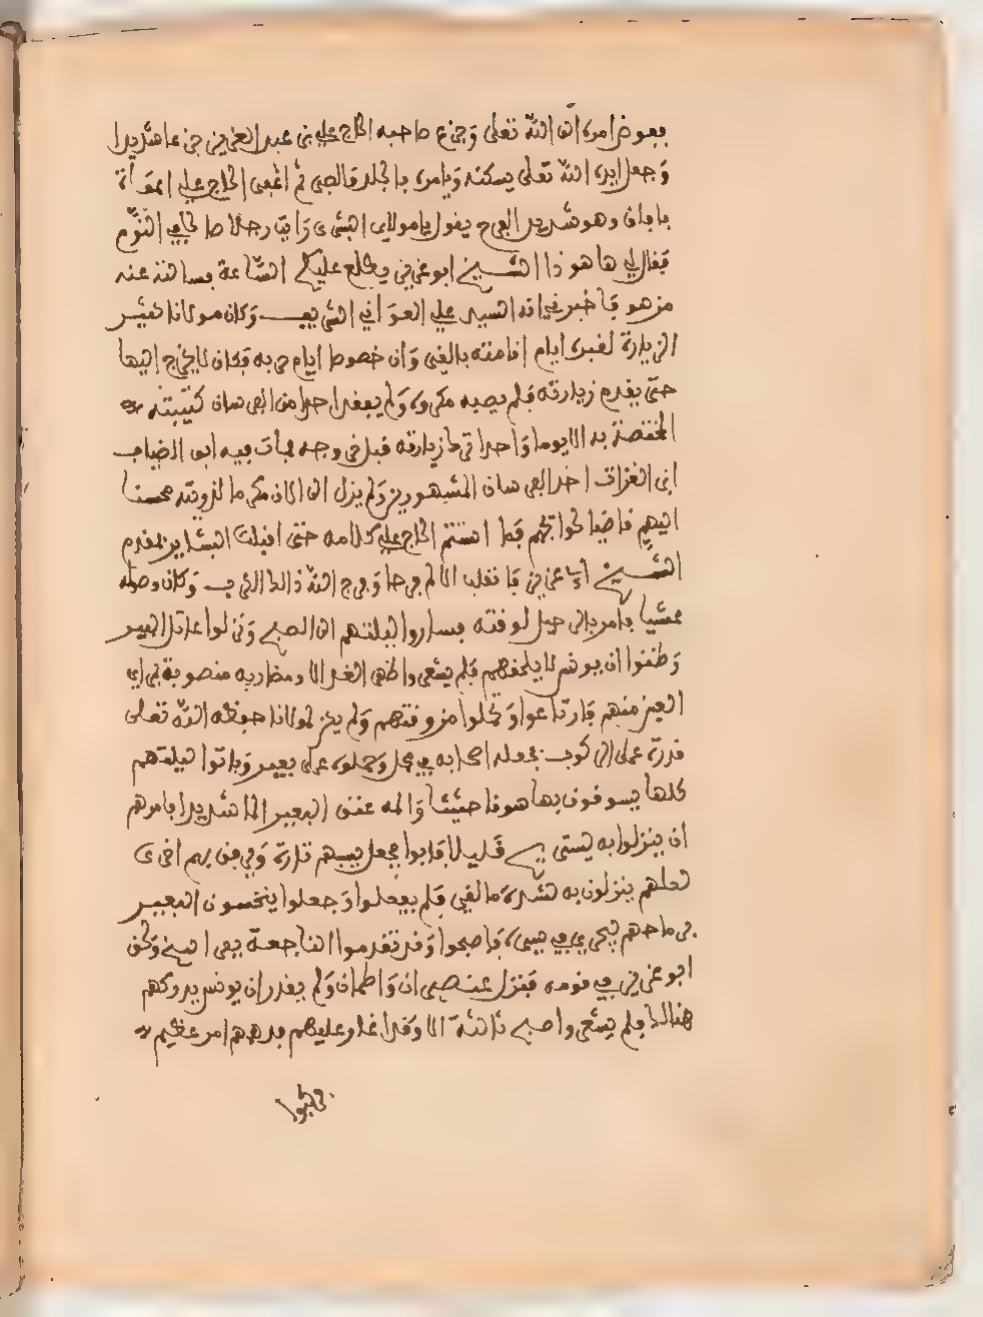 بعوض امره الى الله تعلى وجزع صاحبه الحاج علي بن عبد العزيز جزعا شديدا
وجعل ايده الله تعلى يسكنه ويامره بالجلد والصبر ثم اغفى الحاج علي اغفاءة
فافاق وهو شديد الفرح يقول يا مولاي البشرى رايت رجلا صالحا في النوم
فقال لي ها هو ذا الشيخ ابو عزيز يطلع عليكم الساعة فسالته عنه
من هو فاخبرني انه السيد علي العواني الشريف وكان مولانا كثير
الزيارة لقبره ايام اقامته بالقيروان خصوصا ايام حربه فكان لا يخرج اليها
حتى يقدم زيارته فلم يصبه مكروه ولم يفقد احدا من الفرسان كتيبته
المختصة به الا يوما واحدا ترك زيارته قبل في وجهه فمات فيه ابو الضياف
ابن الغزات احد الفرسان المشهورين ولم يزل الى الان مكرما لذريته محسنا
اليهم قاضيا لحوائجهم فما استتم الحاج علي كلامه حتى اقبلت البشاير بمقدم
الشيخ ابي عزيز فانقلب الالم فرحا وفرج الله ذلك الكرب وكان وصوله
عشيا فامر بالرحيل لوقته فساروا ليلتهم الى الصبح ونزلوا عن السير
وظنوا ان يونس لا يلحقهم فلم يشعروا ظهر الغد الا ومضاربه منصوبة براي
العين منهم فارتاعوا وتحملوا من وقتهم ولم يكن لمولانا حفظه الله تعلى
قدرة على الركوب فجعله اصحابه في محمل وحملوه على بعير وباتوا ليلتهم
كلها يسوقون بها سوقا حثيثا والمه عنق البعير الما شديدا يامرهم
ان ينزلوا به يستريح قليلا فابوا فجعل يسبهم تارة ويرفق بهم اخرى
لعلهم ينزلون به لشدة ما لقي فلم يفعلوا وجعلوا ينخسون البعير
برماحهم ليجري في سيره فاصبحوا وقد تقدموا الناجعة يعني السرح ولحق
ابو عزيز في قومه فنزل عنصران واطمان ولم يقدر ان يونس يدركهم
هنالك فلم يشعروا صبح ثالثة الا وقد اغار عليهم فدهمهم امر عظيم
فركبوا